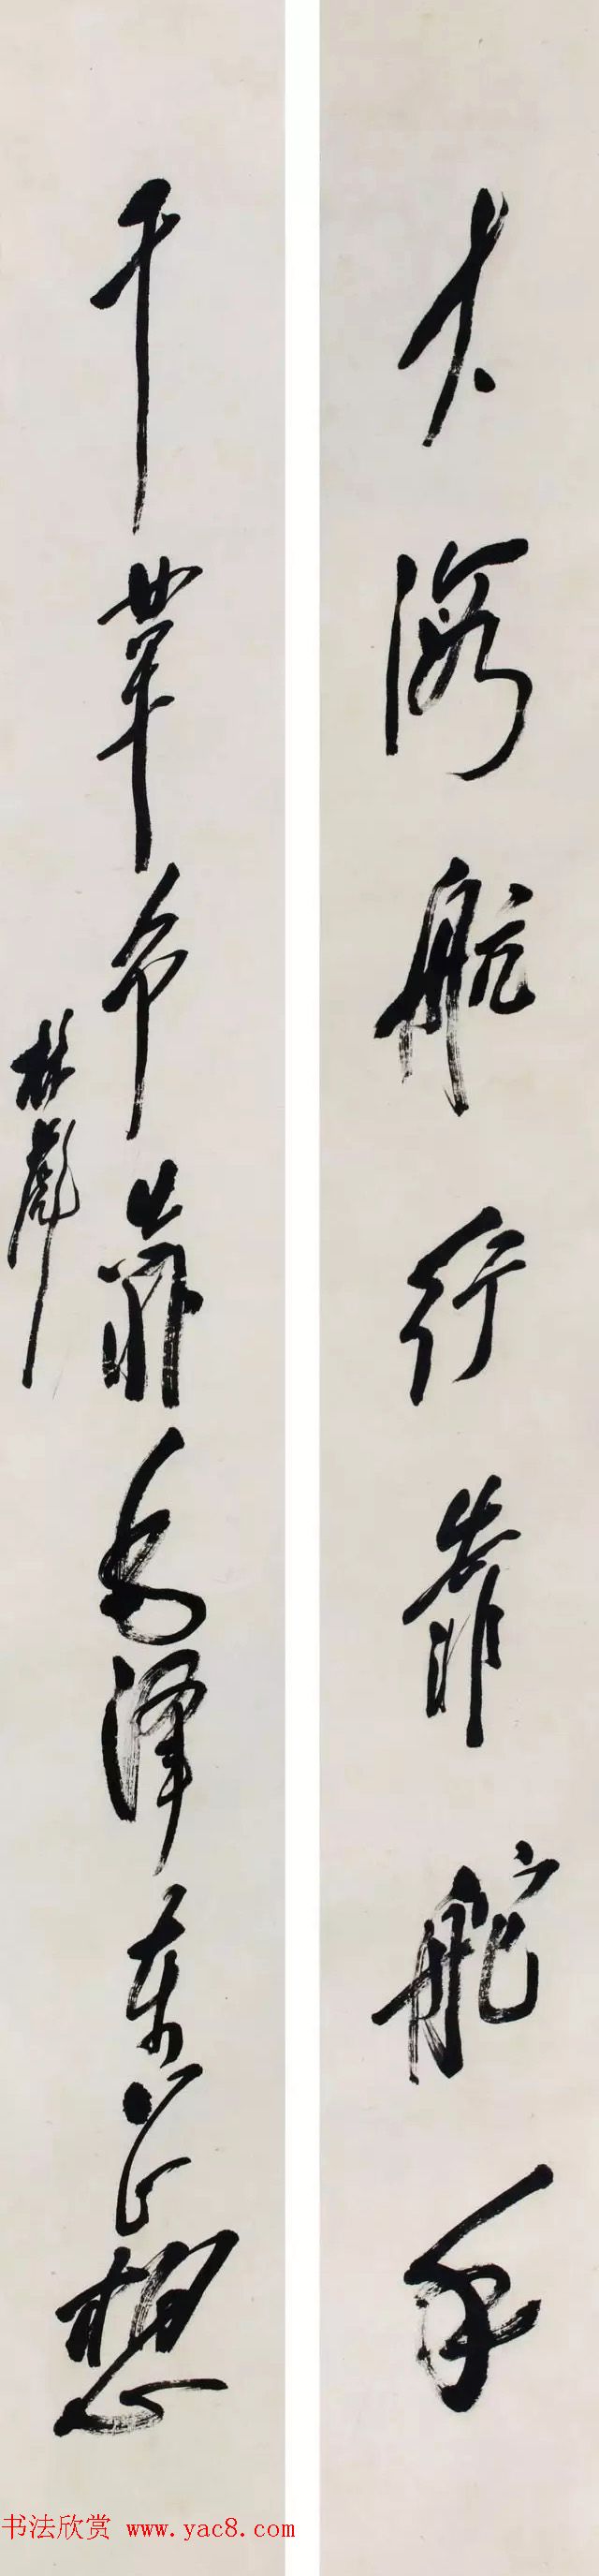 大海航行靠舵手
干革命靠毛泽东思想
林彪
书法欣赏 www.yac8.com